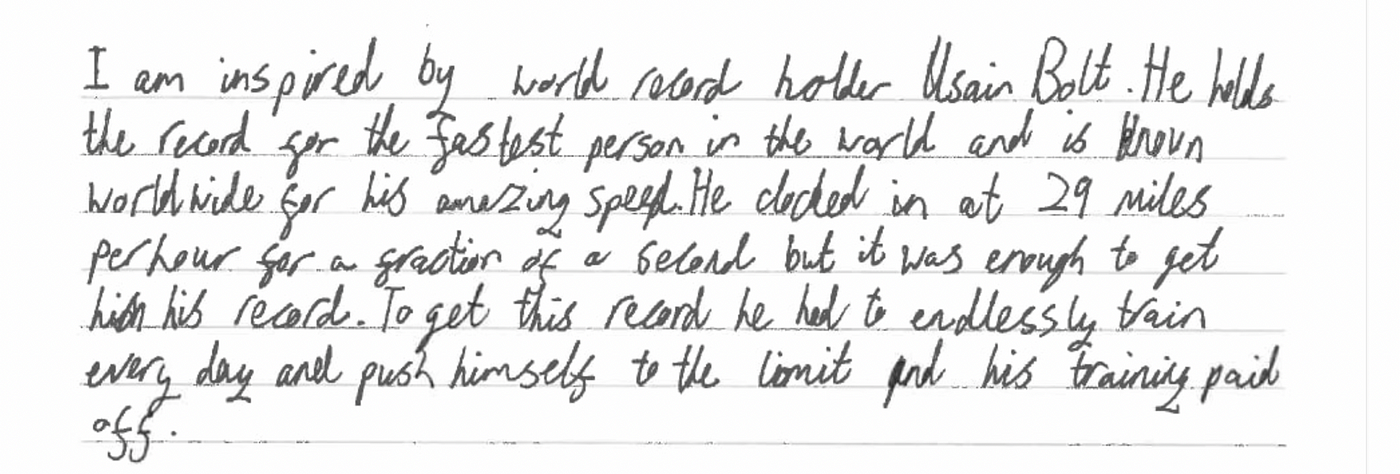 I am inspired by world record holder Usain Bolt. He holds
the record for the fastest person in the world and is known
worldwide for his amazing speed. He clocked in at 29 miles
per hour for a fraction of a second but it was enough to get
him his record. To get this record he had to endlessly train
every day and push himself to the limit and his training paid
off.